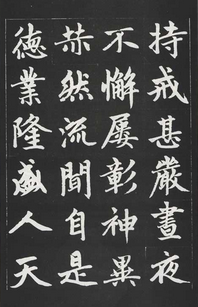 持戒甚嚴晝夜
不懈屢彰神異
赫然流聞自是
徳業隆盛人天